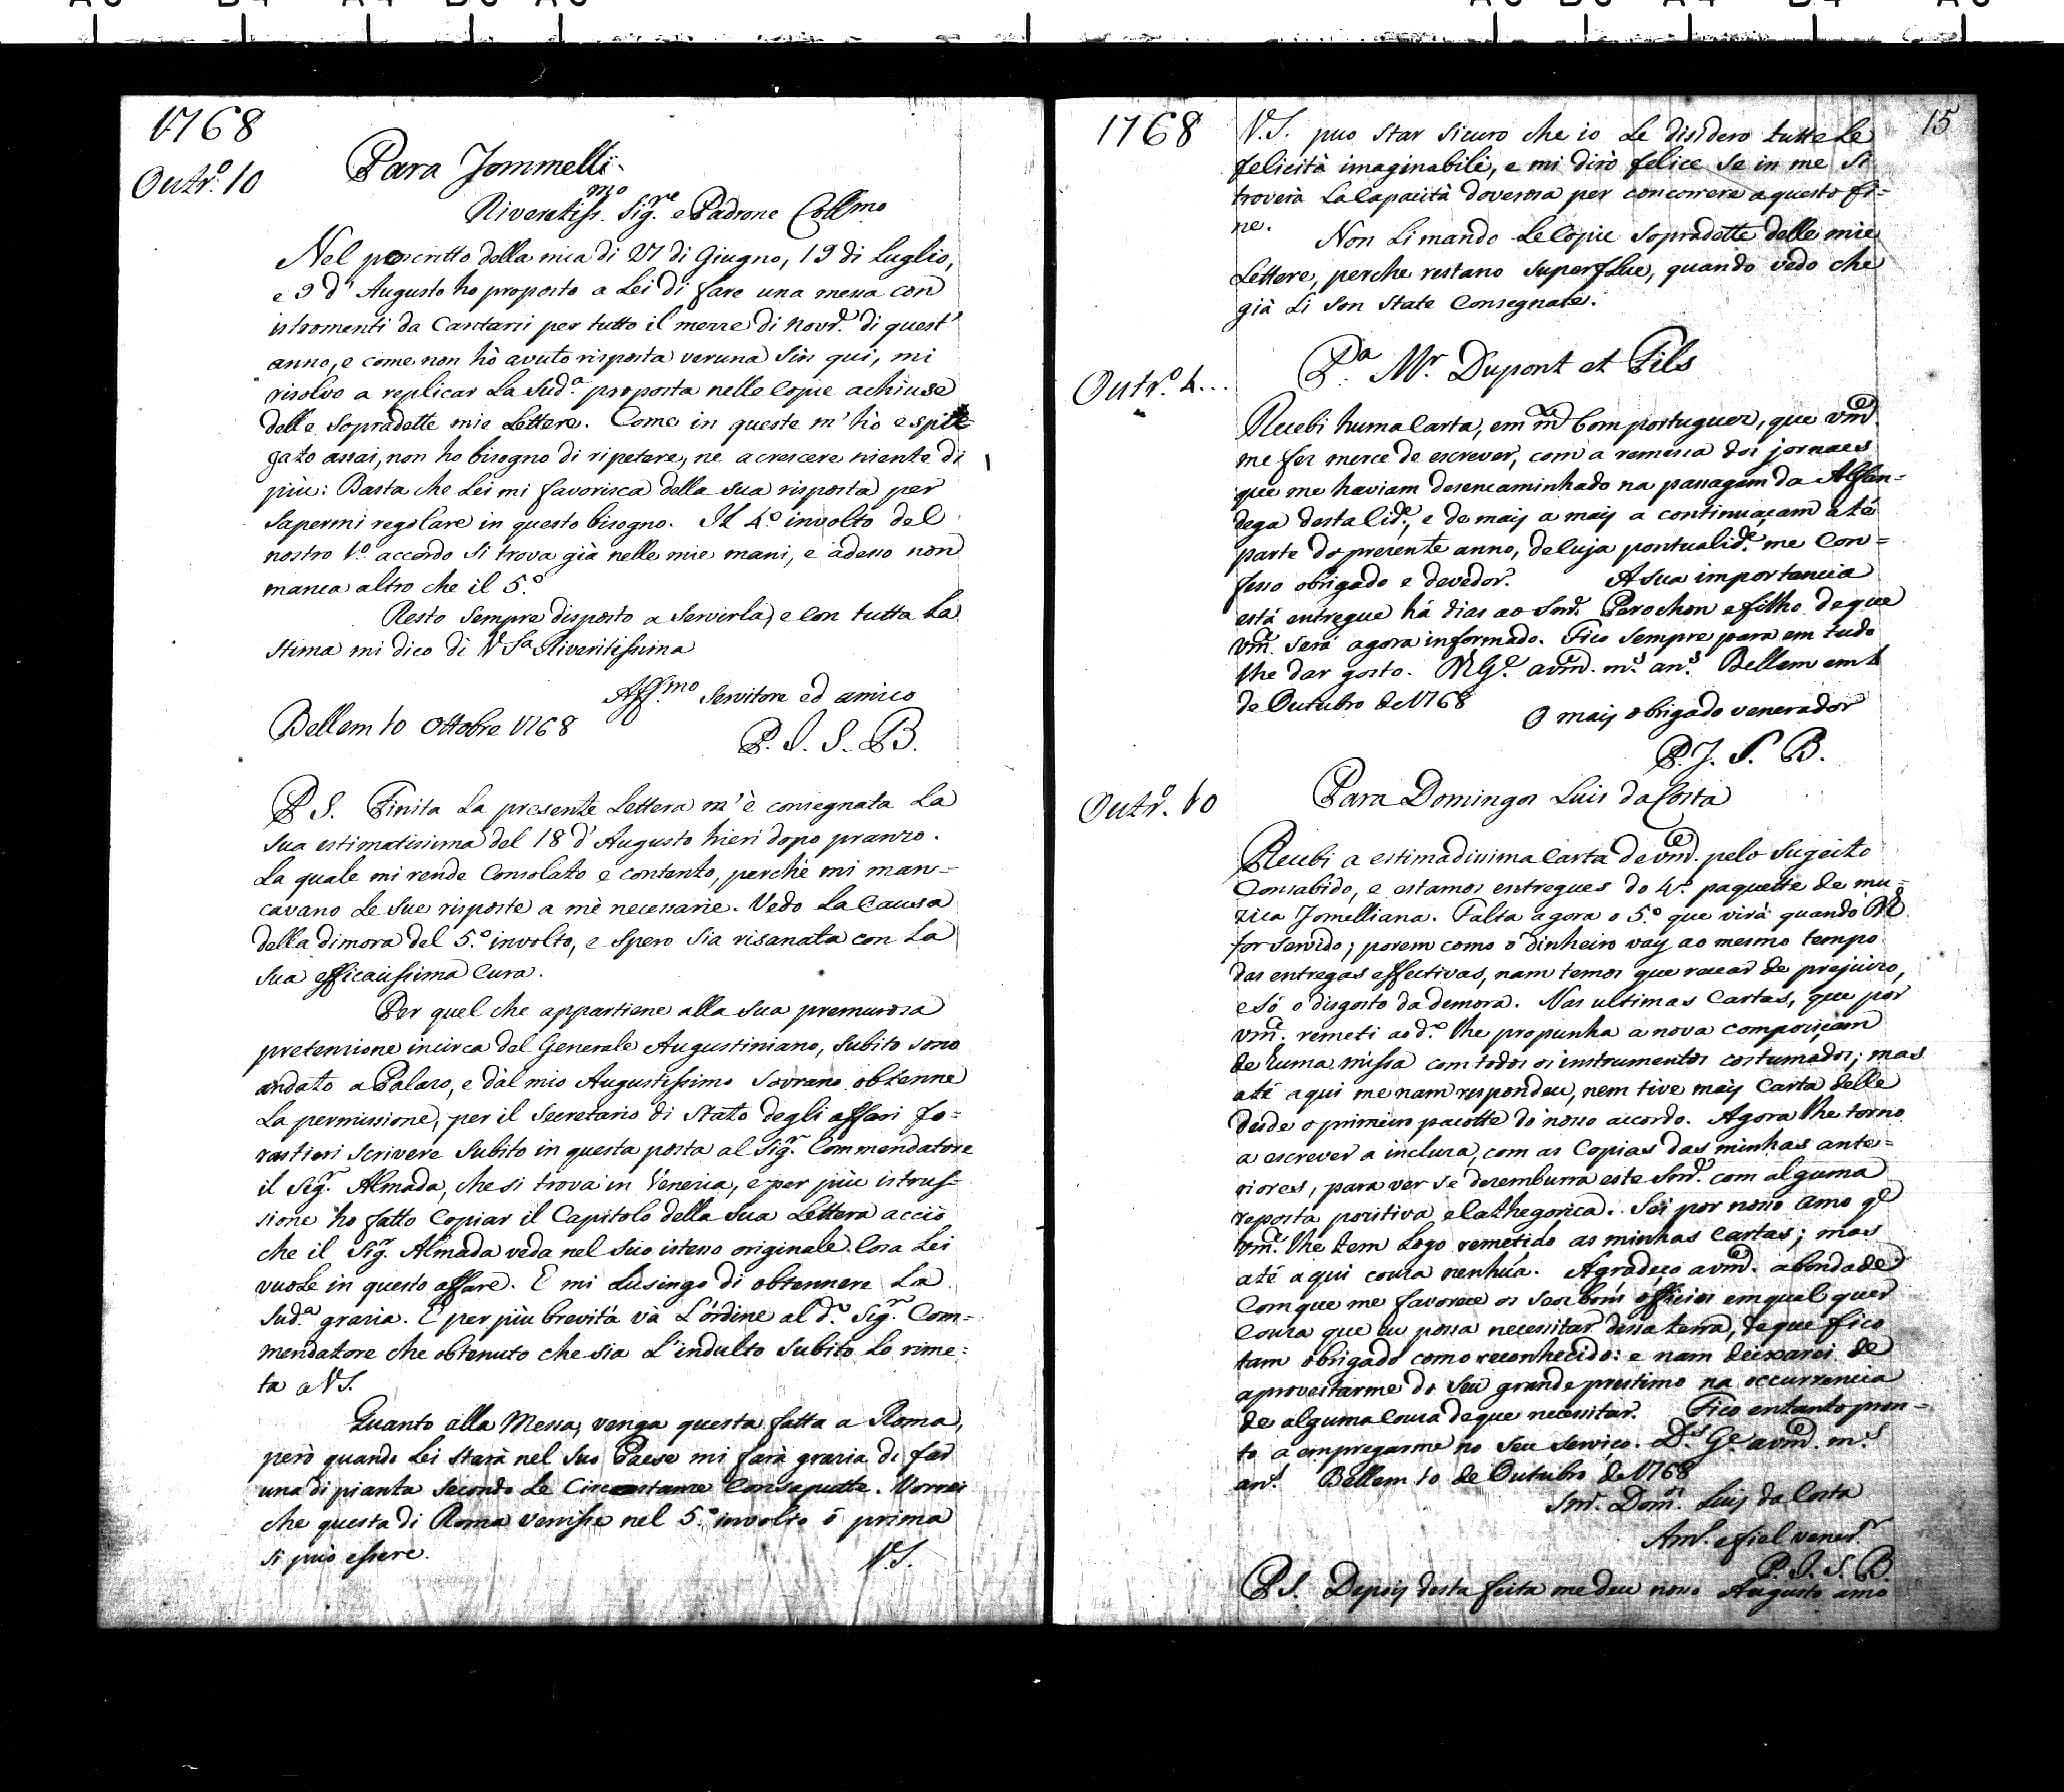 1768
Outr.º 10
Para Jommelli
Riveretiss.mo Sig.re e Padrone Coll.mo
Nel poscritto della mia di 27 di Giugno, 19 di Luglio,
e 9 d'Augusto ho proposto a Lei di fare una messa con
istromenti da Cantarsi per tutto il mese di Novr.e di quest'
anno, e come non hò avuto risposta veruna sin qui, mi
risolvo a replicar La Sud.a proposta nelle Copie achiuse
delle Sopradette mie Lettere. Come in queste m'hò espie-
gato assai, non ho bisogno di ripetere, ne acrescere niente di
più: Basta che Lei mi favorisca della sua risposta per
Sapermi regolare in questo bisogno. Il 4.º involto del
nostro 1.º accordo si trova già nelle mie mani, e adesso non
manca altro che il 5.º
Resto Sempre disposto a Servirla, e con tutta La
Stima mi dico di V.S.a Riveritissima
Aff.mo Servitore ed amico
Bellem 10 Ottobre 1768
P. J. S. B.
P.S. Finita La presente Lettera m'è consegnata La
sua estimatissima del 18 d'Augusto hieri dopo pranzo.
La quale mi rende Consolato e contento, perchè mi man-
cavano Le Sue risposte a mè necessarie. Vedo La Causa
della dimora del 5.º involto, e Spero Sia risanata con La
sua efficacissima Cura.
Per quel che appartiene alla sua premurosa
pretensione incirca del Generale Augustiniano, Subito sono
andato a Palazo, e dal mio Augustissimo Sovrano obtenne
La permissione, per il Secretario di Stato degli affari fo-
rastieri Scrivere Subito in questa posta al Sig.r Commendatore
il Sig.r Almada, che si trova in Venezia, e per più istrus-
sione ho fatto Copiar il Capitolo della Sua Lettera acciò
che il Sig.r Almada veda nel Suo istesso originale Cosa Lei
vuole in questo affare. E mi Lusingo di obtennere La
Sud.a grazia. E per più brevità và L'òrdine al d.º Sig.r Com-
mendatore che obtenuto che sia L'indulto Subito Lo rime-
ta a V.S.
Quanto alla Messa, venga questa fatta a Roma,
però quando Lei Starà nel Suo Paese mi farà grazia di far
una di pianta Secondo Le Circostanze Consapute. Vorrei
che questa di Roma venisse nel 5.º involto ò prima
si può essere.
V.S.
1768
15
V.S. puo Star Sicuro che io Le disidero tutte Le
felicità imaginabili, e mi dirò felice se in me Si
troverà La Capacità doverosa per concorrere a questo fi-
ne.
Non Li mando Le Copie Sopradette delle mie
Lettere, perche restano Superflue, quando vedo che
già Li Son State Consegnate.
Outr.º 4...
P.a Mr. Dupont et Fils
Recebi huma Carta, em m.to bom portuguez, que vm.ce
me fez merce de escrever, com a remessa dos jornaes
que me haviam desencaminhado na passagem da Alfan-
dega desta Cid.e, e de mais a mais a continuaçam até
parte do prezente anno, de cuja pontualid.e me Con-
fesso obrigado e devedor. A sua importancia
está entregue há dias ao Snr. Perochon e filho, de que
vm.ce será agora informado. Fico Sempre para em tudo
lhe dar gosto. N.G.e a vm.ce m.s an.s Bellem em 4
de Outubro de 1768
O mais obrigado venerador
P. J. S. B.
Outr.º 10
Para Domingos Luis da Costa
Recebi a estimadissima Carta de vm.ce pelo Sugeito
Consabido, e estamos entregues do 4.º paquette de mu-
zica Jomelliana. Falta agora o 5.º que virá quando
for Servido; porem como o dinheiro vay ao mesmo tempo
das entregas effectivas, nam temos que recear de prejuizo,
e Só o disgosto da demora. Nas ultimas Cartas, que por
vm.ce remeti ao d.º lhe propunha a nova compoziçam
de huma missa com todos os instrumentos costumados; mas
até aqui me nam respondeu, nem tive mais Carta delle
desde o primeiro pacotte do nosso accordo. Agora lhe torno
a escrever a incluza, com as Copias das minhas ante-
riores, para ver se dezemburra este Snr. com alguma
reposta pozitiva e Cathegorica. Sei por nosso Amo q.e
vm.ce lhe tem Logo remetido as minhas Cartas; mas
até aqui couza nenhúa. Agradeço a vm.ce a bondade
Com que me favorece os Seos bons officios em qual quer
Couza que eu possa necessitar dessa terra, de que fico
tam obrigado como reconhecido: e nam deixarei de
aproveitarme do Seu grande prestimo na occurrencia
de alguma Couza de que necessitar. Fico entanto pron-
to a empregarme no Seu Serviço. D.s G.e a vm.ce m.s
an.s Bellem 10 de Outubro de 1768
Snr. Dom.os Luis da Costa
Am.º e fiel vener.r
P. J. S. B.
P.S. Depois desta feita me deu nosso Augusto amo